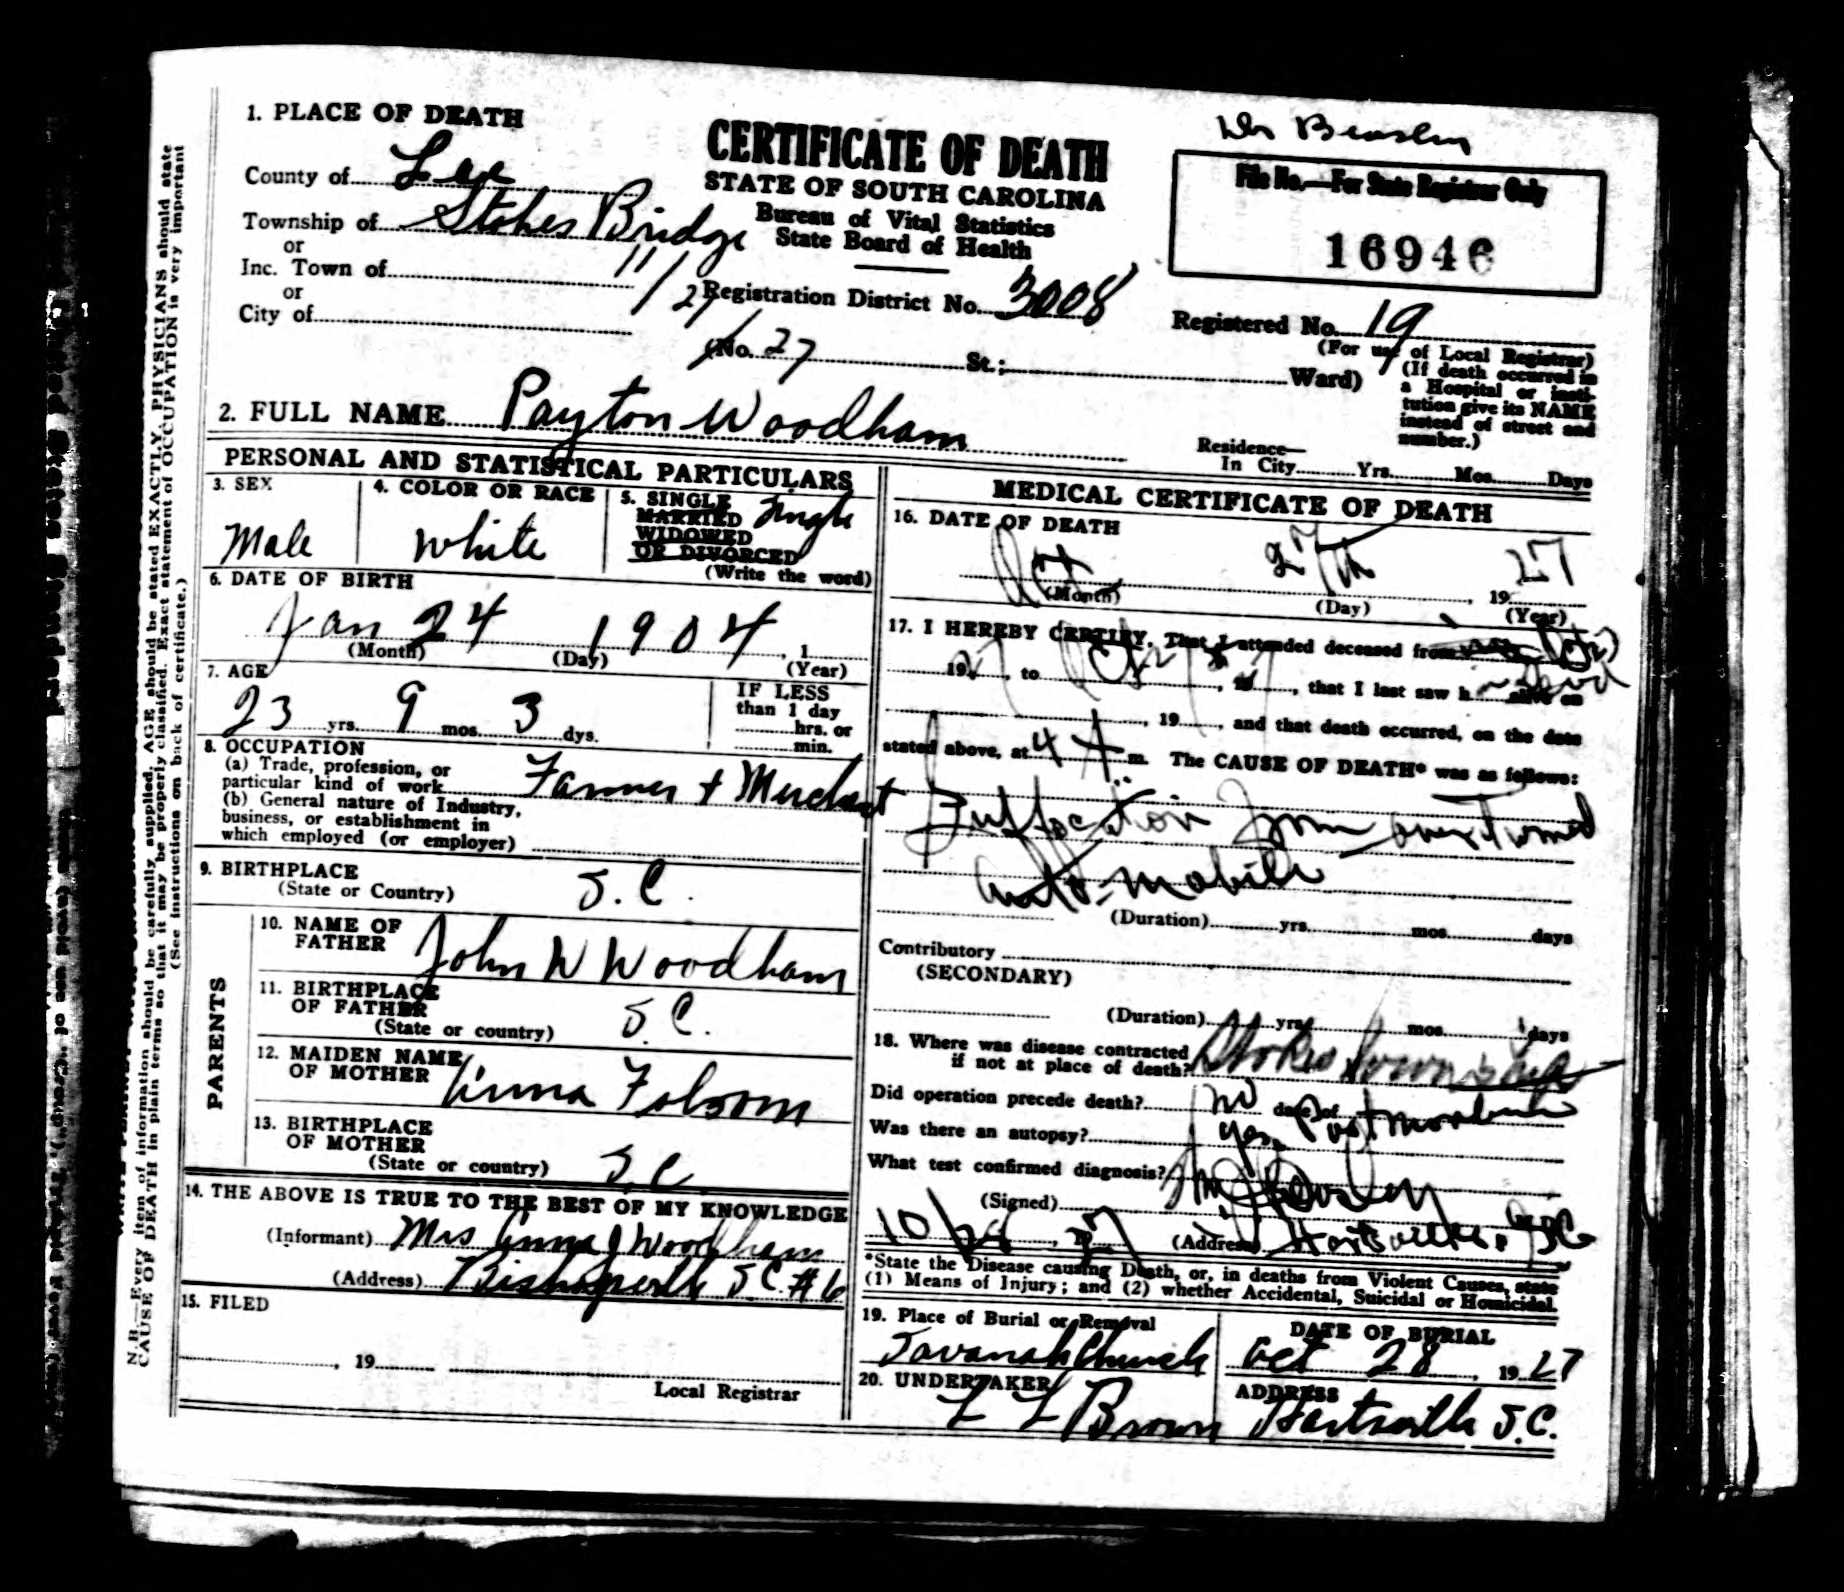 1. PLACE OF DEATH
County of Lee
Township of Stokes Bridge
or
Inc. Town of
or
City of
CERTIFICATE OF DEATH
STATE OF SOUTH CAROLINA
Bureau of Vital Statistics
State Board of Health
11/29/27
Registration District No. 3008
(No. St.; Ward)
Dr Beasley
File No.—For State Registrar Only
16946
Registered No. 19
(For use of Local Registrar)
(If death occurred in
a Hospital or insti-
tution give its NAME
instead of street and
number.)
2. FULL NAME Payton Woodham
Residence—
In City Yrs. Mos. Days
PERSONAL AND STATISTICAL PARTICULARS
3. SEX
Male
4. COLOR OR RACE
White
5. SINGLE Single
MARRIED
WIDOWED
OR DIVORCED
(Write the word)
6. DATE OF BIRTH
Jan 24 1904, 1
(Month) (Day) (Year)
7. AGE
23 yrs. 9 mos. 3 dys.
IF LESS
than 1 day
hrs. or
min.
8. OCCUPATION
(a) Trade, profession, or
particular kind of work Farmer + Merchant
(b) General nature of Industry,
business, or establishment in
which employed (or employer)
9. BIRTHPLACE
(State or Country) S.C.
PARENTS
10. NAME OF
FATHER John W Woodham
11. BIRTHPLACE
OF FATHER
(State or country) S.C.
12. MAIDEN NAME
OF MOTHER Anna Folsom
13. BIRTHPLACE
OF MOTHER
(State or country) S.C.
14. THE ABOVE IS TRUE TO THE BEST OF MY KNOWLEDGE
(Informant) Mrs Anna J Woodham
(Address) Bishopville S.C. #6
15. FILED
, 19
Local Registrar
MEDICAL CERTIFICATE OF DEATH
16. DATE OF DEATH
Oct 27th, 1927
(Month) (Day) (Year)
17. I HEREBY CERTIFY, That I attended deceased from
1927, to Oct 27, 27, that I last saw h dead alive on
, 19, and that death occurred, on the date
stated above, at 4 A m. The CAUSE OF DEATH* was as follows:
Suffocation from overturned
automobile
(Duration) yrs. mos. days
Contributory
(SECONDARY)
(Duration) yrs. mos. days
18. Where was disease contracted
if not at place of death? Stokes Township
Did operation precede death? no date of
Was there an autopsy? yes, Post mortem
What test confirmed diagnosis?
(Signed) Beasley
10/28, 27 (Address) Hartsville, S.C.
*State the Disease causing Death, or, in deaths from Violent Causes, state
(1) Means of Injury; and (2) whether Accidental, Suicidal or Homicidal.
19. Place of Burial or Removal
Savanah Church
DATE OF BURIAL
Oct 28, 1927
20. UNDERTAKER
L L Brown
ADDRESS
Hartsville S.C.
N. B.—Every item of information should be carefully supplied. AGE should be stated EXACTLY. PHYSICIANS should state
CAUSE OF DEATH in plain terms so that it may be properly classified. Exact statement of OCCUPATION is very important
(See instructions on back of certificate.)